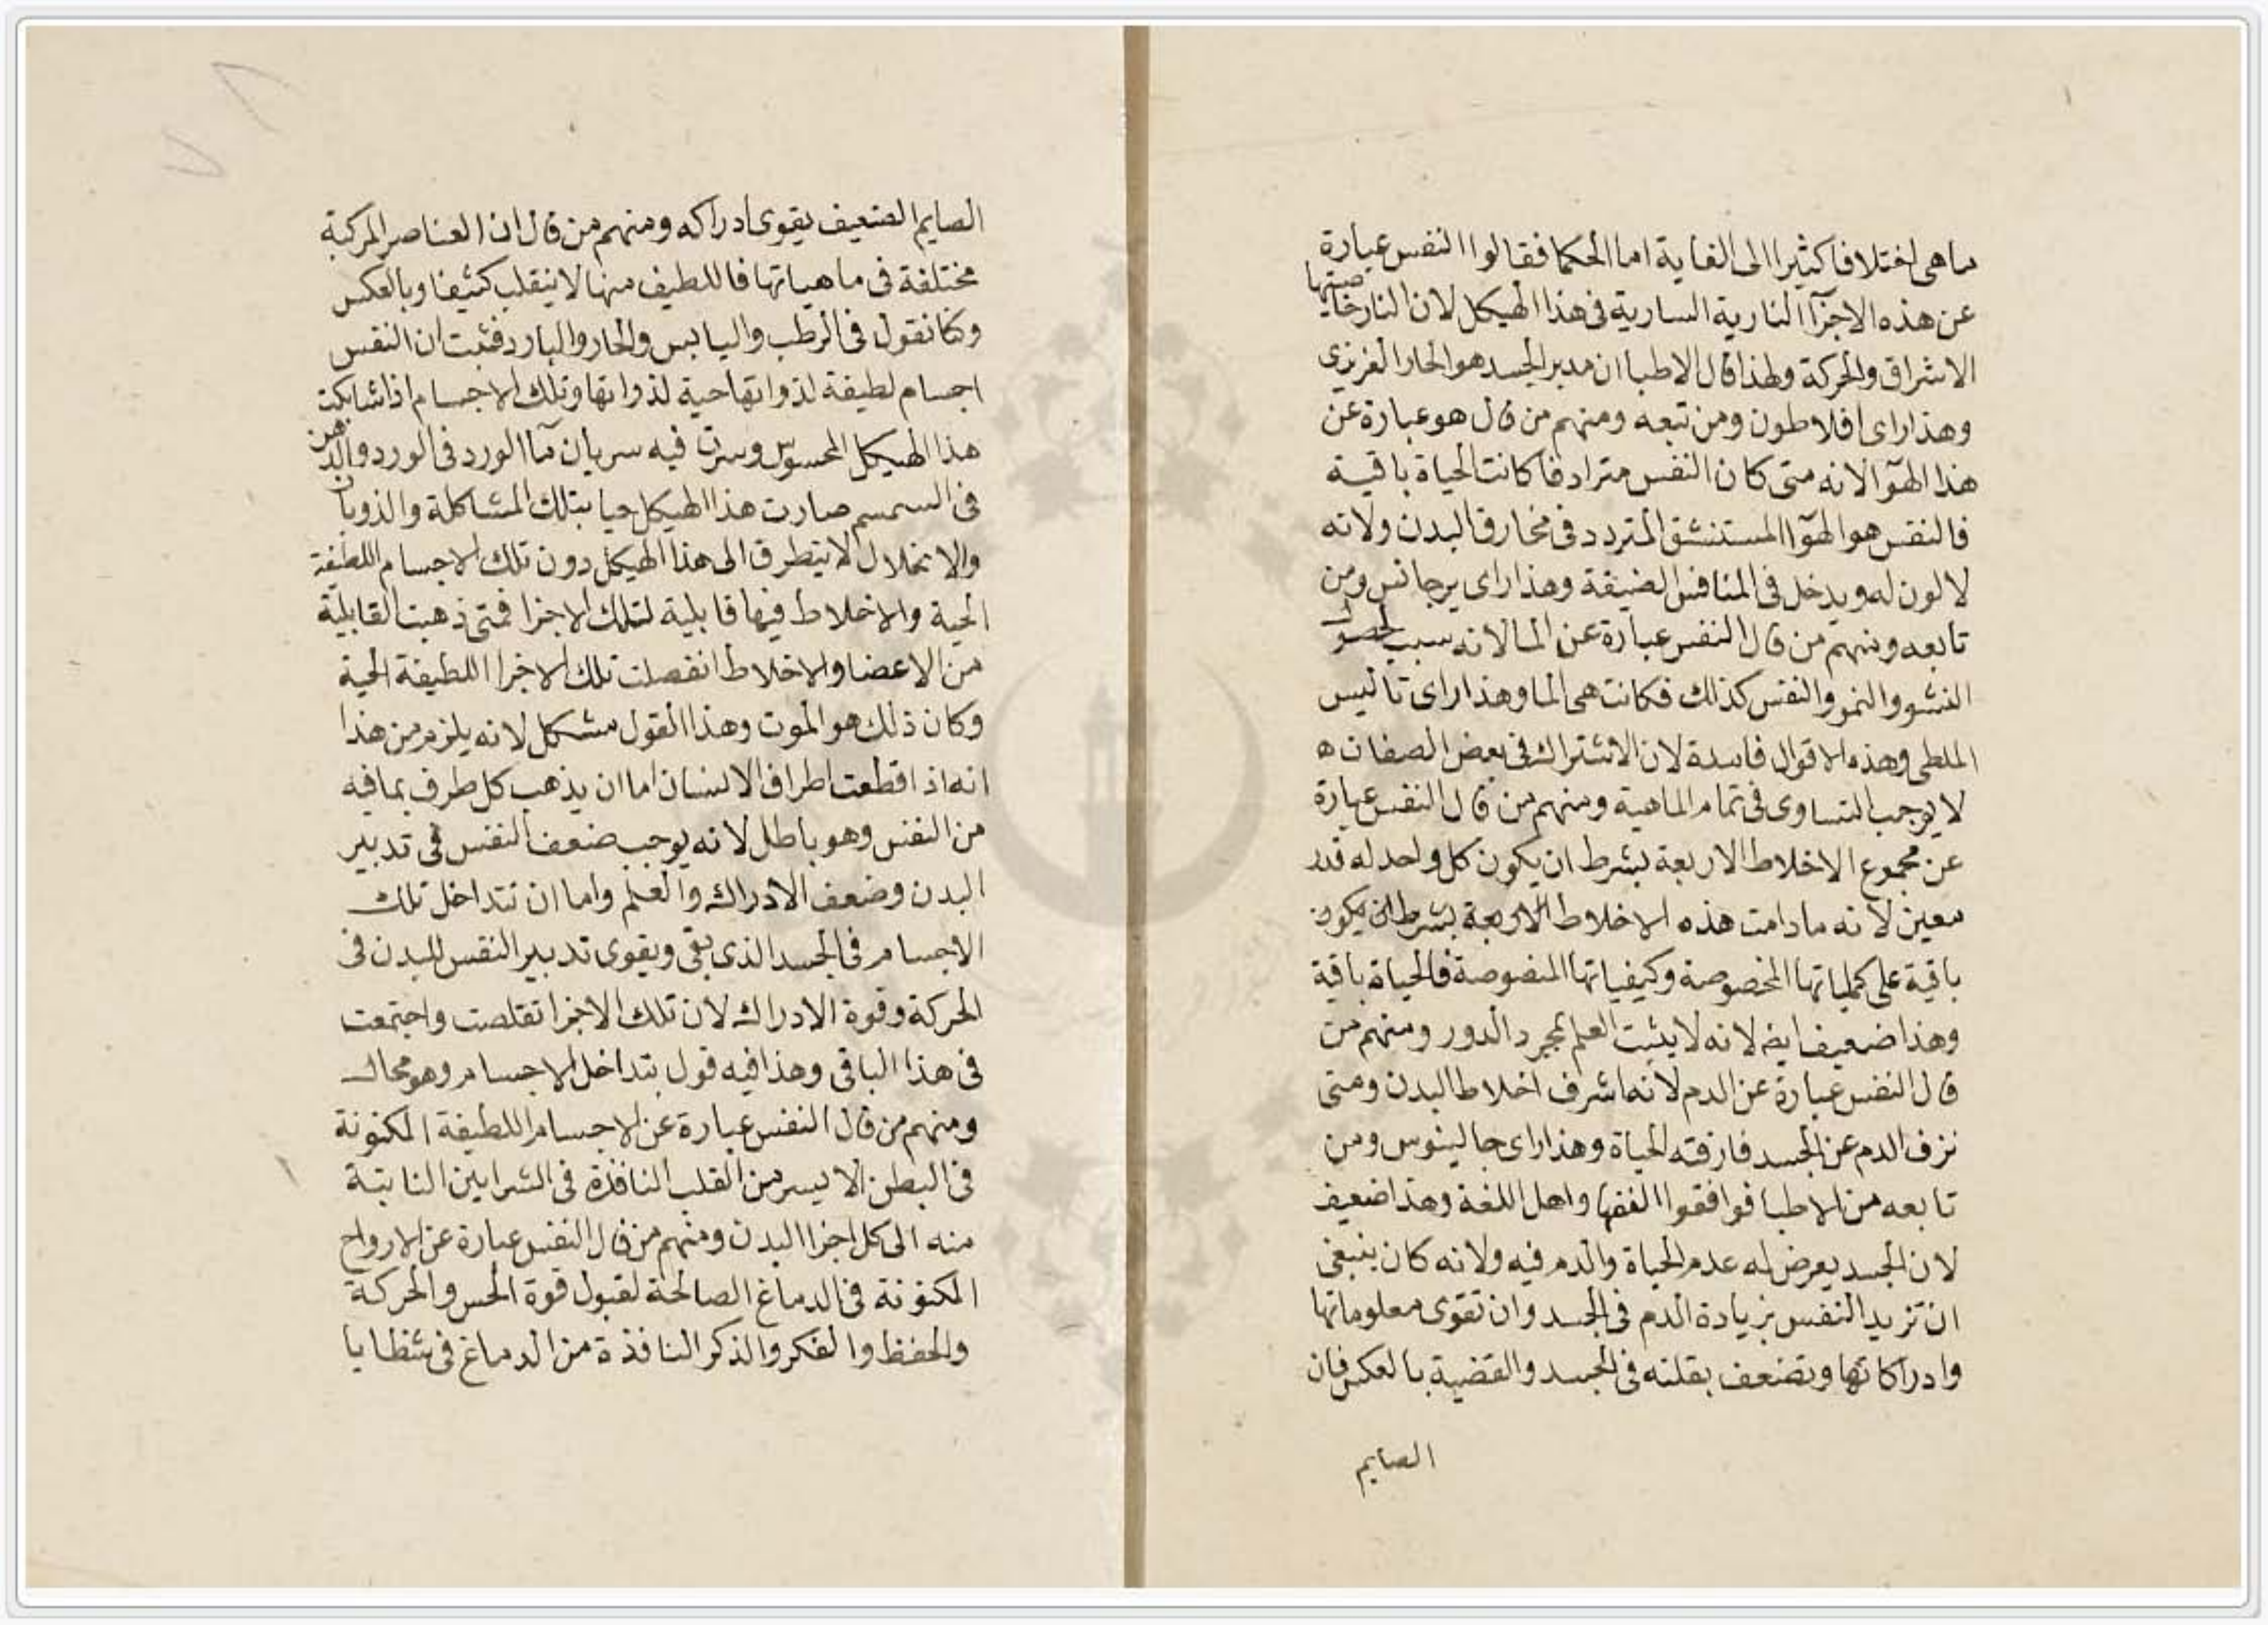 ما هى اختلافا كثيرا الى الغاية اما الحكما فقالوا النفس عبارة
عن هذه الاجزآ النارية السارية فى هذا الهيكل لان النار خاصيتها
الاشراق والحركة ولهذا قال الاطبا ان مدبر الجسد هو الحار الغريزى
وهذا راى افلاطون ومن تبعه ومنهم من قال هو عبارة عن
هذا الهوآ لانه متى كان النفس مترادفا كانت الحياة باقية
فالنفس هو الهوآ المستنشق المتردد فى مخارق البدن ولانه
لا لون له ويدخل فى المنافس الضيقة وهذا راى يرجانس ومن
تابعه ومنهم من قال النفس عبارة عن الما لانه سبب لحصول
النشو والنمو والنفس كذلك فكانت هى الما وهذا راى تاليس
الملطى وهذه الاقوال فاسدة لان الاشتراك فى بعض الصفات ه
لا يوجب التساوى فى تمام الماهية ومنهم من قال النفس عبارة
عن مجموع الاخلاط الاربعة بشرط ان يكون كل واحد له قدر
معين لانه مادامت هذه الاخلاط الاربعة بشرط ان يكون
باقية على كمياتها المخصوصة وكيفياتها المنصوصة فالحياة باقية
وهذا ضعيف ايضا لانه لا يثبت العلم بمجرد الدور ومنهم من
قال النفس عبارة عن الدم لانه اشرف اخلاط البدن ومتى
نزف الدم عن الجسد فارقته الحياة وهذا راى جالينوس ومن
تابعه من الاطبا فوافقوا الفقها واهل اللغة وهذا ضعيف
لان الجسد يعرض له عدم الحياة والدم فيه ولانه كان ينبغى
ان تزيد النفس بزيادة الدم فى الجسد وان تقوى معلوماتها
وادراكاتها وتضعف بقلته فى الجسد والقضية بالعكس فان
الصايم
الصايم الضعيف يقوى ادراكه ومنهم من قال ان العناصر المركبة
مختلفة فى ماهياتها فاللطيف منها لا ينقلب كثيفا وبالعكس
وكا نقول فى الرطب واليابس والحار والبارد فثبت ان النفس
اجسام لطيفة لذواتها حية لذواتها وتلك الاجسام اذا شابكت
هذا الهيكل المحسوس وسرت فيه سريان مآ الورد فى الورد والدهن
فى السمسم صارت هذا الهيكل حيا بتلك المشاكلة والذوبان
والانحلال لا يتطرق الى هذا الهيكل دون تلك الاجسام اللطيفة
الحية والاخلاط فيها قابلية لتلك الاجزا فمتى ذهبت القابلية
من الاعضا والاخلاط انفصلت تلك الاجزا اللطيفة الحية
وكان ذلك هو الموت وهذا القول مشكل لانه يلزم من هذا
انه اذا قطعت اطراف الانسان اما ان يذهب كل طرف بما فيه
من النفس وهو باطل لانه يوجب ضعف النفس فى تدبير
البدن وضعف الادراك والعلم واما ان تتداخل تلك
الاجسام فى الجسد الذى بقى ويقوى تدبير النفس للبدن فى
الحركة وقوة الادراك لان تلك الاجزا تقلصت واجتمعت
فى هذا الباقى وهذا فيه قول بتداخل الاجسام وهو محال
ومنهم من قال النفس عبارة عن الاجسام اللطيفة المكنونة
فى البطن الايسر من القلب النافذة فى الشرايين النابتة
منه الى كل اجزا البدن ومنهم من قال النفس عبارة عن الارواح
المكنونة فى الدماغ الصالحة لقبول قوة الحس والحركة
والحفظ والفكر والذكر النافذة من الدماغ فى شظايا